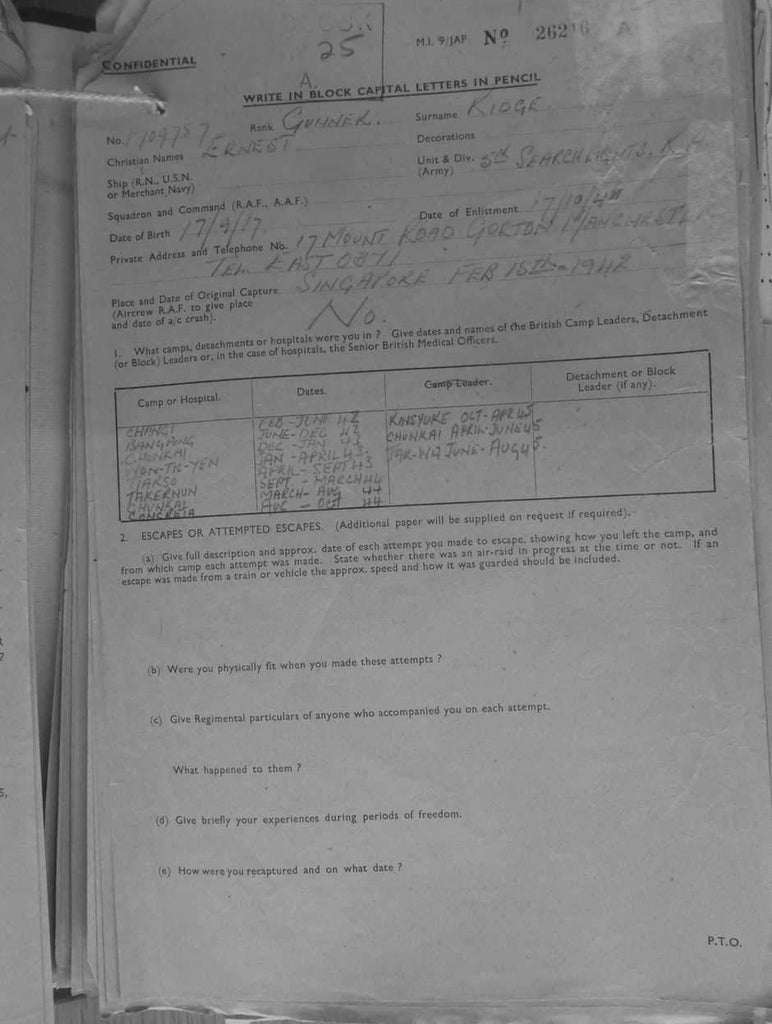 25
M.I. 9/JAP Nº 26216 A
CONFIDENTIAL
A.
WRITE IN BLOCK CAPITAL LETTERS IN PENCIL
No. 1709757 Rank GUNNER. Surname KIDGE.
Christian Names ERNEST Decorations
Ship (R.N., U.S.N. or Merchant Navy) Unit & Div. (Army) 5th SEARCHLIGHTS. R A
Squadron and Command (R.A.F., A.A.F.)
Date of Birth 17/9/17. Date of Enlistment 17/10/40
Private Address and Telephone No. 17 MOUNT ROAD GORTON MANCHESTER
TEL. EAST 0871
Place and Date of Original Capture SINGAPORE FEB 15th - 1942
(Aircrew R.A.F. to give place
and date of a/c crash). No.
1. What camps, detachments or hospitals were you in ? Give dates and names of the British Camp Leaders, Detachment
(or Block) Leaders or, in the case of hospitals, the Senior British Medical Officers.
Camp or Hospital. Dates. Camp Leader. Detachment or Block Leader (if any).
CHANGI FEB - JUNE 42 KINSYUKE OCT - APR 45
BANGPONG JUNE - DEC 42 CHUNKAI APRIL - JUNE 45
CHUNKAI DEC - JAN 43 TAR-WA JUNE - AUG 45.
WON-TIC-YEN JAN - APRIL 43.
TARSO APRIL - SEPT 43
TAKERNUN SEPT. - MARCH 44
CHUNKAI MARCH - AUG 44
AUG - OCT 44
2. ESCAPES OR ATTEMPTED ESCAPES. (Additional paper will be supplied on request if required).
(a) Give full description and approx. date of each attempt you made to escape, showing how you left the camp, and
from which camp each attempt was made. State whether there was an air-raid in progress at the time or not. If an
escape was made from a train or vehicle the approx. speed and how it was guarded should be included.
(b) Were you physically fit when you made these attempts ?
(c) Give Regimental particulars of anyone who accompanied you on each attempt.
What happened to them ?
(d) Give briefly your experiences during periods of freedom.
(e) How were you recaptured and on what date ?
P.T.O.